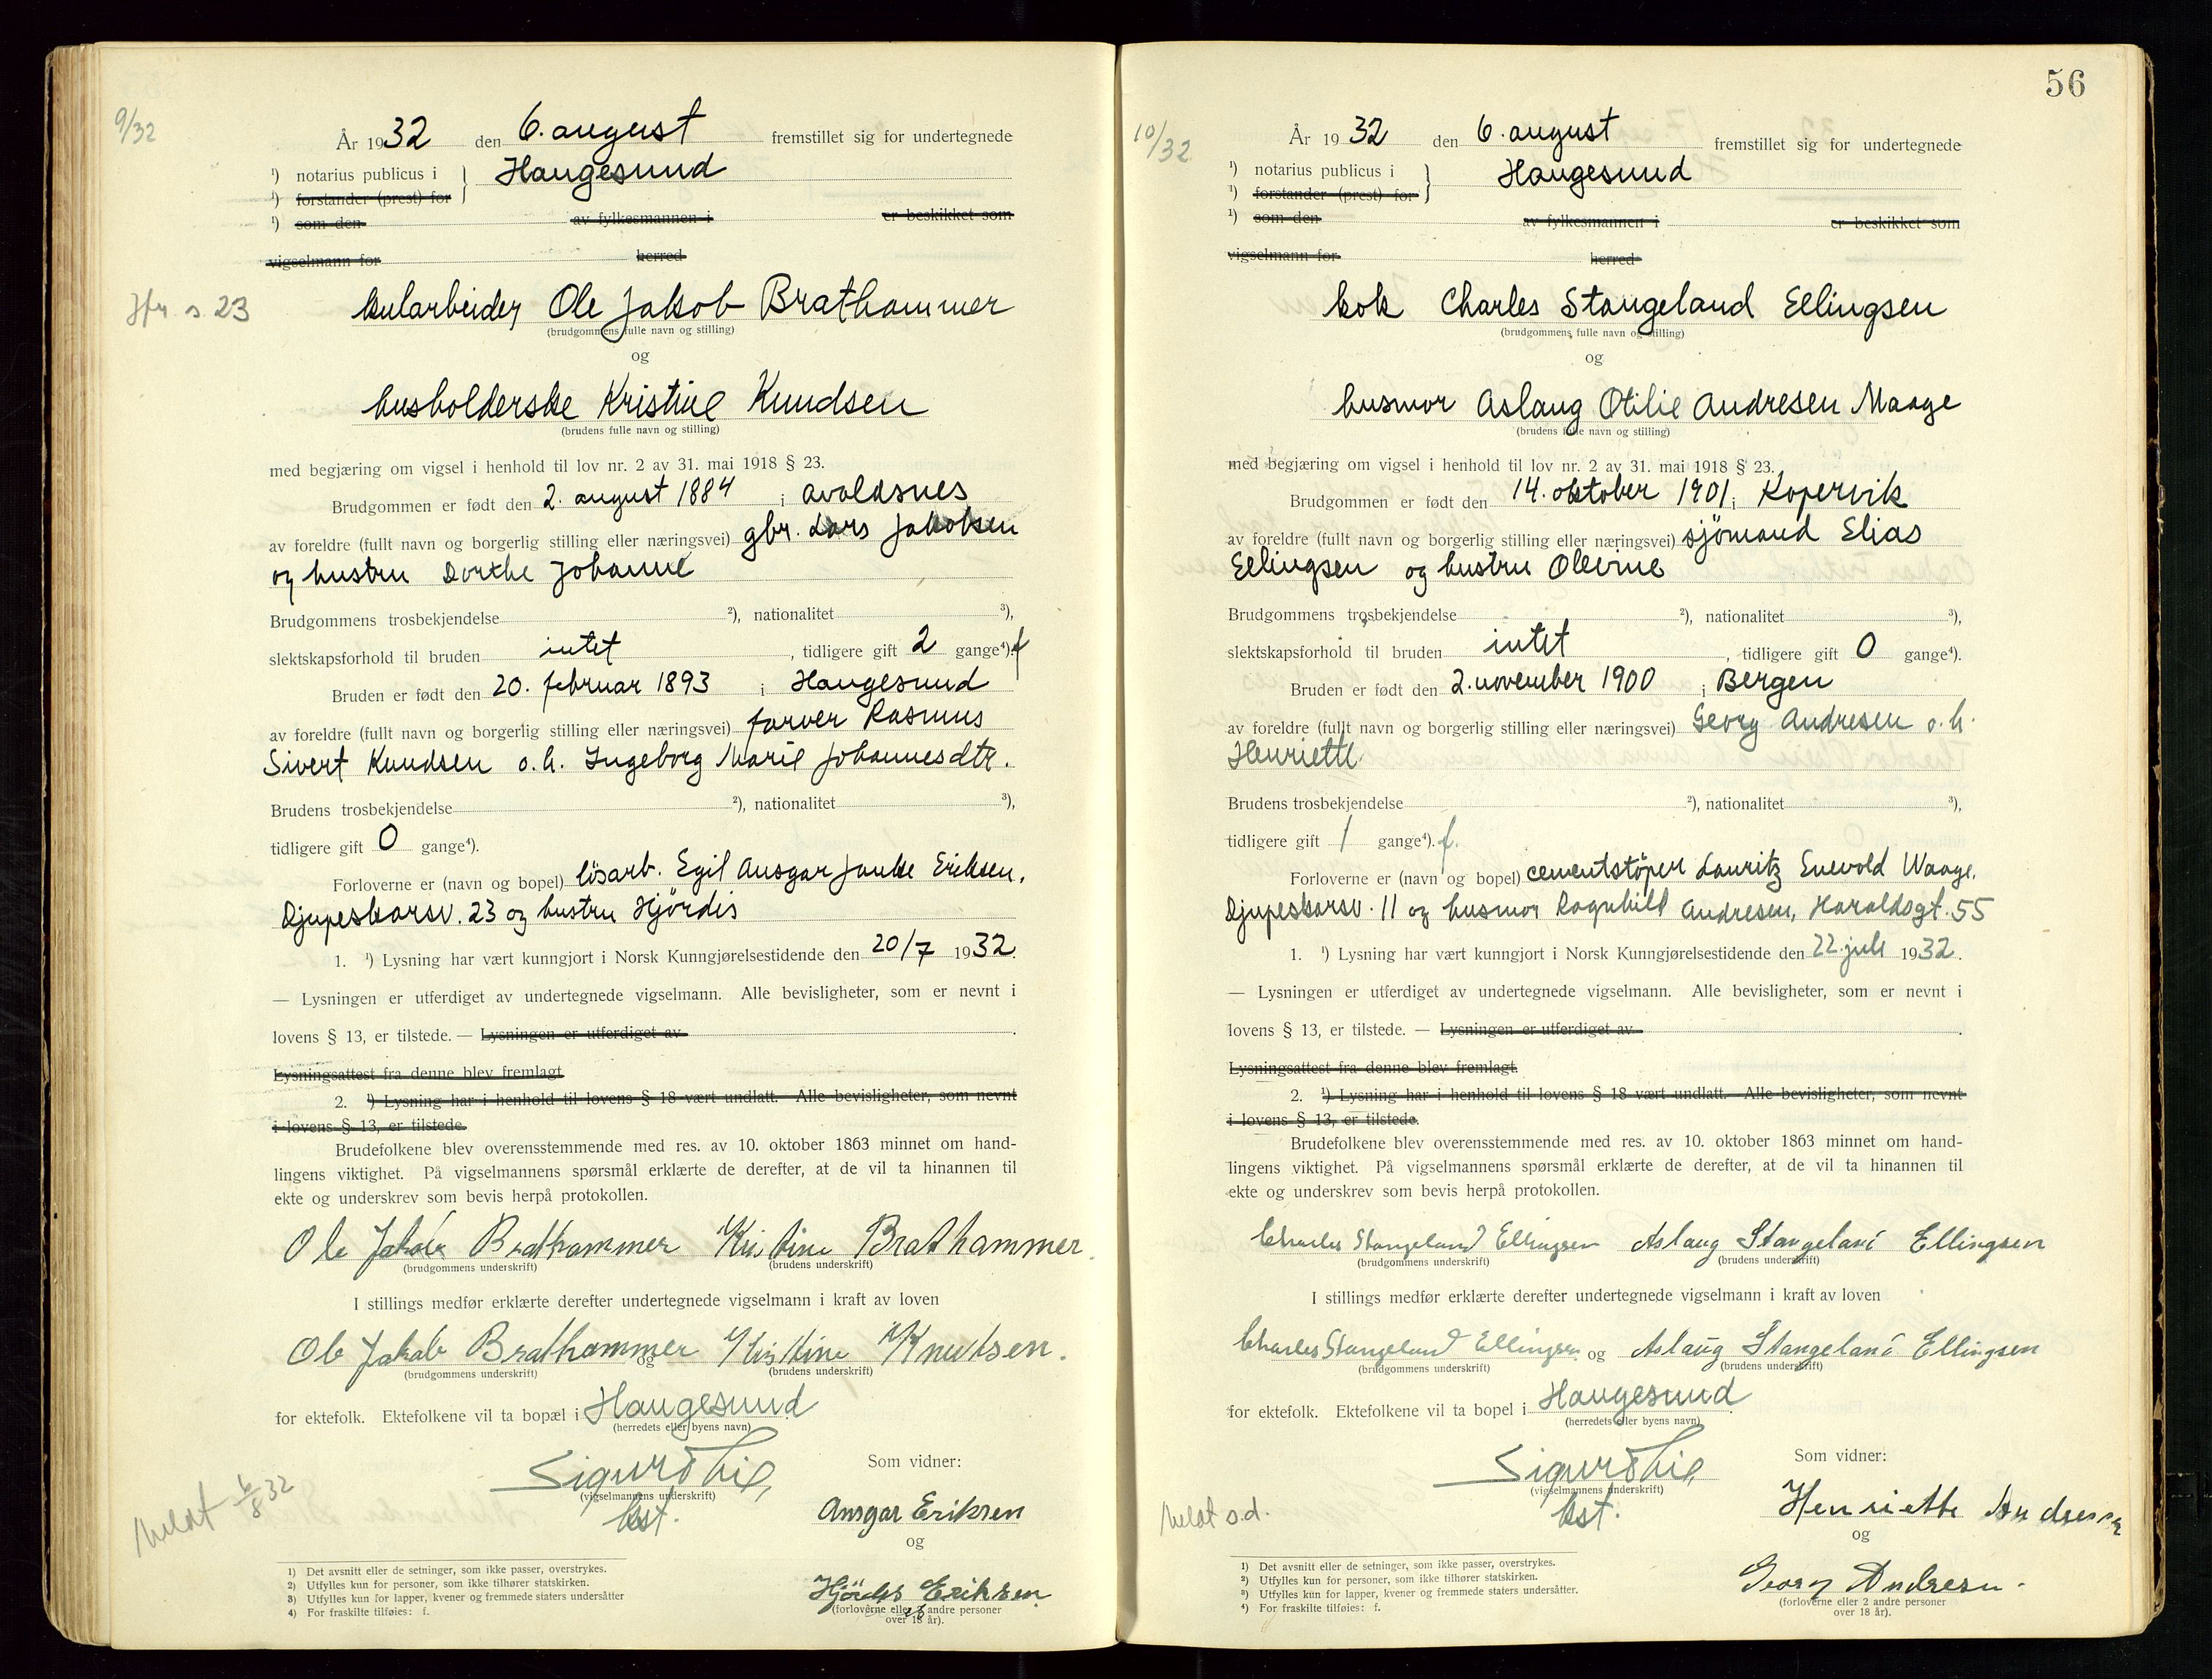 9/32
År 1932 den 6. august fremstillet sig for undertegnede
¹) notarius publicus i } Haugesund
¹) forstander (prest) for
¹) som den av fylkesmannen i er beskikket som
vigselmann for herred
Jfr. s 23
kularbeider Ole Jakob Brathammer
(brudgommens fulle navn og stilling)
og
husholderske Kristine Knudsen
(brudens fulle navn og stilling)
med begjæring om vigsel i henhold til lov nr. 2 av 31. mai 1918 § 23.
Brudgommen er født den 2. august 1884 i Avaldsnes
av foreldre (fullt navn og borgerlig stilling eller næringsvei) gbr. Lars Jakobsen
og hustru Dorthe Johanne
Brudgommens trosbekjendelse ²), nationalitet ³),
slektskapsforhold til bruden intet, tidligere gift 2 gange⁴). f
Bruden er født den 20. februar 1893 i Haugesund
av foreldre (fullt navn og borgerlig stilling eller næringsvei) farver Rasmus
Sivert Knudsen o.h. Ingeborg Marie Johannesdtr.
Brudens trosbekjendelse ²), nationalitet ³),
tidligere gift 0 gange⁴).
Forloverne er (navn og bopel) lösarb. Egil Ansgar Eriksen,
Djupeskarsv. 23 og hustru Hjördis
1. ¹) Lysning har vært kunngjort i Norsk Kunngjørelsestidende den 20/7 1932.
— Lysningen er utferdiget av undertegnede vigselmann. Alle bevisligheter, som er nevnt i
lovens § 13, er tilstede. — Lysningen er utferdiget av .
Lysningsattest fra denne blev fremlagt.
2. ¹) Lysning har i henhold til lovens § 18 vært undlatt. Alle bevisligheter, som nevnt
i lovens § 13, er tilstede.
Brudefolkene blev overensstemmende med res. av 10. oktober 1863 minnet om hand-
lingens viktighet. På vigselmannens spørsmål erklærte de derefter, at de vil ta hinannen til
ekte og underskrev som bevis herpå protokollen.
Ole Jakob Brathammer Kristine Brathammer.
(brudgommens underskrift) (brudens underskrift)
I stillings medfør erklærte derefter undertegnede vigselmann i kraft av loven
Ole Jakob Brathammer og Kristine Knutsen.
(brudgommens underskrift) (brudens underskrift)
for ektefolk. Ektefolkene vil ta bopæl i Haugesund
(herredets eller byens navn)
Sigurd Lie Som vidner:
(vigselmannens underskrift)
kst.
Meldt 6/8 32
Ansgar Eriksen
og
Hjördis Eriksen
(forloverne eller 2 andre personer
over 18 år).
¹) Det avsnitt eller de setninger, som ikke passer, overstrykes.
²) Utfylles kun for personer, som ikke tilhører statskirken.
³) Utfylles kun for lapper, kvener og fremmede staters undersåtter
⁴) For fraskilte tilføies: f.
56
10/32
År 1932 den 6. august fremstillet sig for undertegnede
¹) notarius publicus i } Haugesund
¹) forstander (prest) for
¹) som den av fylkesmannen i er beskikket som
vigselmann for herred
kok Charles Stangeland Ellingsen
(brudgommens fulle navn og stilling)
og
husmor Aslaug Otilie Andresen Maage
(brudens fulle navn og stilling)
med begjæring om vigsel i henhold til lov nr. 2 av 31. mai 1918 § 23.
Brudgommen er født den 14. oktober 1901 i Kopervik
av foreldre (fullt navn og borgerlig stilling eller næringsvei) sjömand Elias
Ellingsen og hustru Olevine
Brudgommens trosbekjendelse ²), nationalitet ³),
slektskapsforhold til bruden intet, tidligere gift 0 gange⁴).
Bruden er født den 2. november 1900 i Bergen
av foreldre (fullt navn og borgerlig stilling eller næringsvei) Georg Andresen o.h.
Henriette
Brudens trosbekjendelse ²), nationalitet ³),
tidligere gift 1 gange⁴). f.
Forloverne er (navn og bopel) cementstöper Lauritz Enevold Waage,
Djupeskarsv. 11 og husmor Ragnhild Andresen, Haraldsgt. 55
1. ¹) Lysning har vært kunngjort i Norsk Kunngjørelsestidende den 22. juli 1932.
— Lysningen er utferdiget av undertegnede vigselmann. Alle bevisligheter, som er nevnt i
lovens § 13, er tilstede. — Lysningen er utferdiget av .
Lysningsattest fra denne blev fremlagt.
2. ¹) Lysning har i henhold til lovens § 18 vært undlatt. Alle bevisligheter, som nevnt
i lovens § 13, er tilstede.
Brudefolkene blev overensstemmende med res. av 10. oktober 1863 minnet om hand-
lingens viktighet. På vigselmannens spørsmål erklærte de derefter, at de vil ta hinannen til
ekte og underskrev som bevis herpå protokollen.
Charles Stangeland Ellingsen Aslaug Stangeland Ellingsen
(brudgommens underskrift) (brudens underskrift)
I stillings medfør erklærte derefter undertegnede vigselmann i kraft av loven
Charles Stangeland Ellingsen og Aslaug Stangeland Ellingsen
(brudgommens underskrift) (brudens underskrift)
for ektefolk. Ektefolkene vil ta bopel i Haugesund
(herredets eller byens navn)
Sigurd Lie Som vidner:
(vigselmannens underskrift)
kst.
Meldt s.d.
Henriette Andresen
og
Georg Andresen.
(forloverne eller 2 andre personer
over 18 år).
¹) Det avsnitt eller de setninger, som ikke passer, overstrykes.
²) Utfylles kun for personer, som ikke tilhører statskirken.
³) Utfylles kun for lapper, kvener og fremmede staters undersåtter.
⁴) For fraskilte tilføies: f.